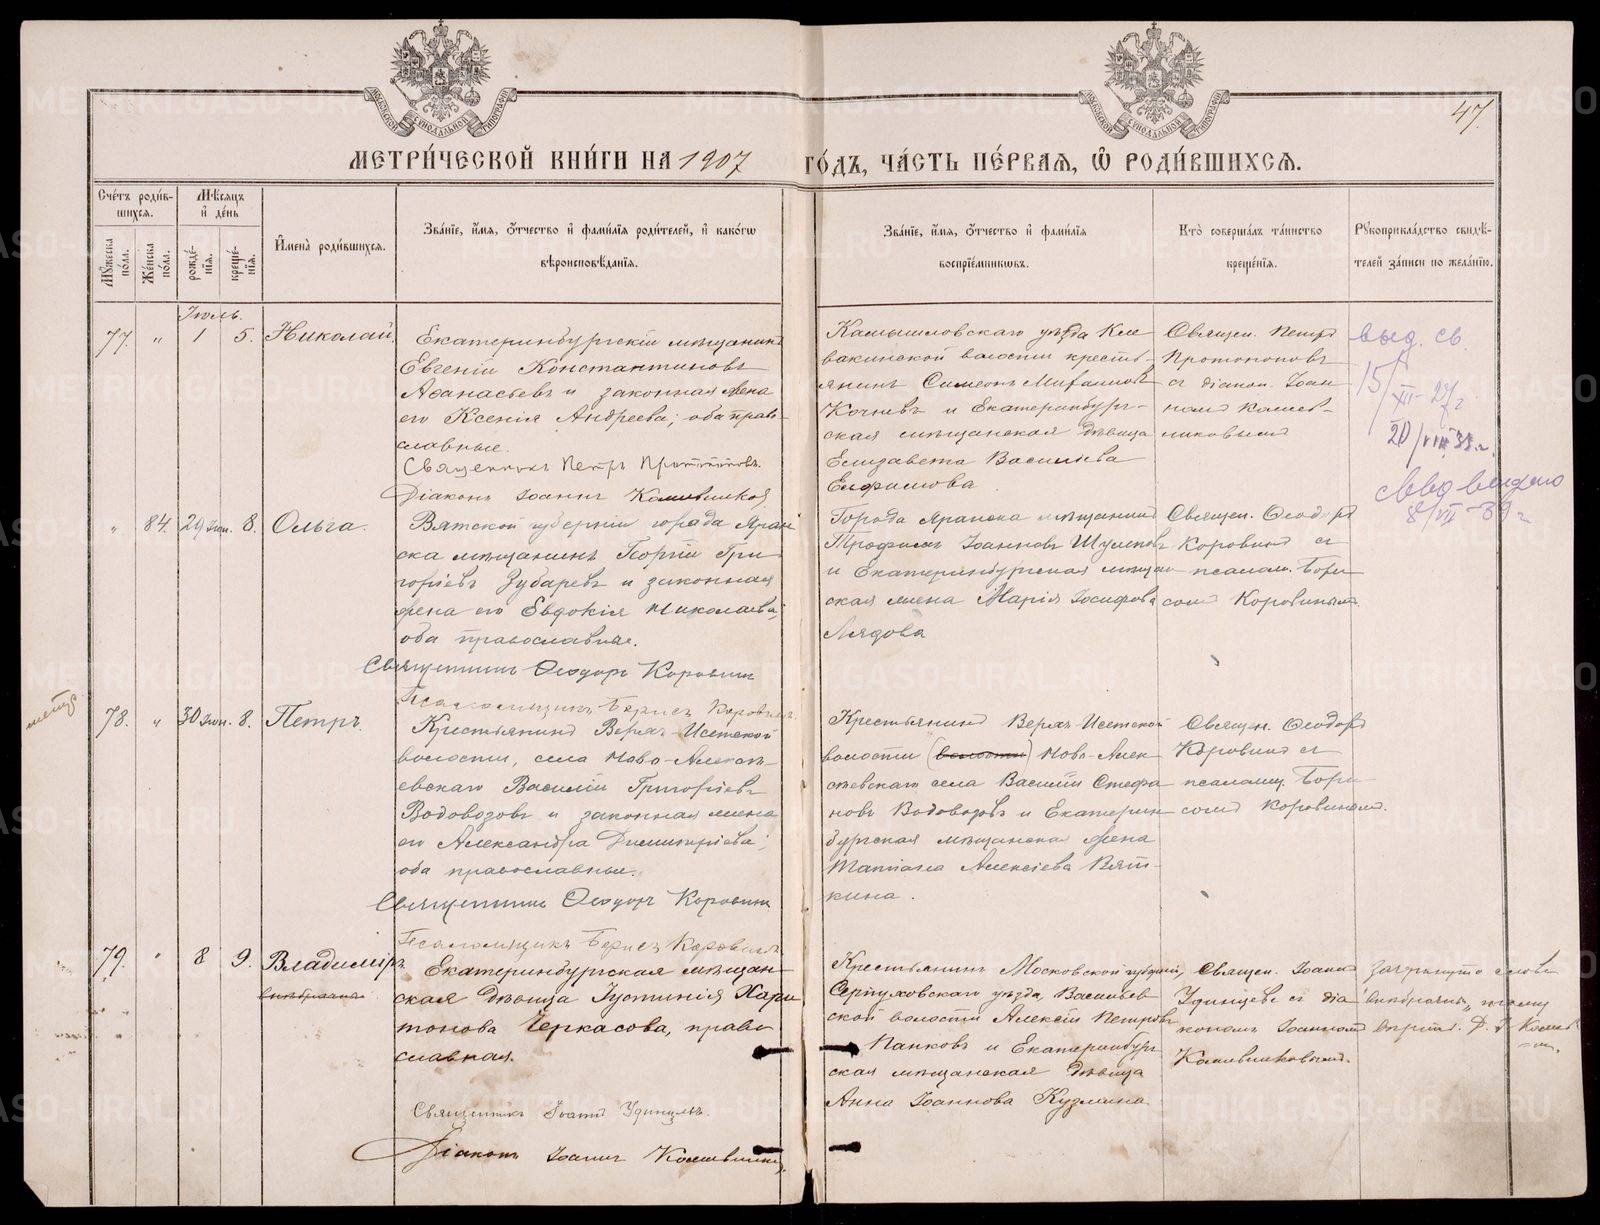 47.
МОСКОВСКОЙ СѴНОДАЛЬНОЙ ТИПОГРАФІИ
МОСКОВСКОЙ СѴНОДАЛЬНОЙ ТИПОГРАФІИ
МЕТРИ́ЧЕСКОЙ КНИ́ГИ НА 1907 ГО́ДЪ, ЧА́СТЬ ПЕ́РВАЯ, Ѿ РОДИ́ВШИХСЯ.
Сче́тъ роди́в-
шихся.
Мѣ́сяцъ
и де́нь
Му́жеска по́ла.
Же́нска по́ла.
рожде́-
нія.
креще́-
нія.
Имена̀ роди́вшихся.
Зва́ніе, и́мя, о́тчество и фами́лія роди́телей, и како́гѡ
вѣроисповѣ́данія.
Зва́ніе, и́мя, о́тчество и фами́лія
воспріе́мниковъ.
Кто̀ соверша́лъ та́инство
креще́нія.
Рукоприкла́дство свидѣ́-
телей за́писи по жела́нію.
Іюль.
77. „ 1 5. Николай.
Екатеринбургскій мѣщанинъ
Евгеній Константиновъ
Аѳанасьевъ и законная жена
его Ксенія Андреева; оба право-
славные.
Священникъ Петръ Протопоповъ.
Діаконъ Іоаннъ
Камышловскаго уѣзда Кле
вакинской волости кресть-
янинъ Симеонъ
и Екатеринбург-
ская мѣщанская дѣвица
Елизавета Васильева
Ефимова
Священ. Петръ
Протопоповъ
съ діакон. Іоан
номъ
выд. св.
15/XII-27 г
20/VIII 38 г.
8/VII-39 г
„ 84. 29 Іюн. 8. Ольга.
Вятской губерніи города Яран
ска мѣщанинъ Георгій Гри
горіевъ Зубаревъ и законная
жена его Евдокія Николаева;
оба православные.
Священникъ Ѳеодоръ Коровинъ
Псаломщикъ Борисъ Коровинъ.
Города Яранска мѣщанинъ
Трофимъ Іоанновъ
и Екатеринбургская мѣщан
ская жена Марія Іосифова
Лядова
Священ. Ѳеодоръ
Коровинъ съ
псалом. Бори
сомъ Коровинымъ.
78. „ 30 Іюн. 8. Петръ.
Крестьянинъ Верхъ-Исетской
волости, села Ново-Алексѣ-
евскаго Василій Григоріевъ
Водовозовъ и законная жена
его Александра Димитріева;
оба православные.
Священникъ Ѳеодоръ Коровинъ
Псаломщикъ Борисъ Коровинъ
Крестьянинъ Верхъ-Исетской
волости (волости) Ново-Алек-
сѣевскаго села Василій Стефа
новъ Водовозовъ и Екатерин
бургская мѣщанская жена
Татіана Алексіева Вят-
кина.
Священ. Ѳеодоръ
Коровинъ съ
псаломщ. Бори
сомъ Коровинымъ.
79. „ 8 9. Владиміръ.
внѣбрачный
Екатеринбургская мѣщан
ская дѣвица Іустинія Хари
тонова Черкасова, право
славная.
Священникъ Іоаннъ Удинцевъ.
Діаконъ Іоаннъ
Крестьянинъ Московской губерніи,
Серпуховскаго уѣзда, Васильев
ской волости Алексій Петровъ
Панковъ и Екатеринбург
ская мѣщанская дѣвица
Анна Іоаннова Кузмина
Священ. Іоаннъ
Удинцевъ съ діа
кономъ Іоанномъ
Зачеркнуто слово